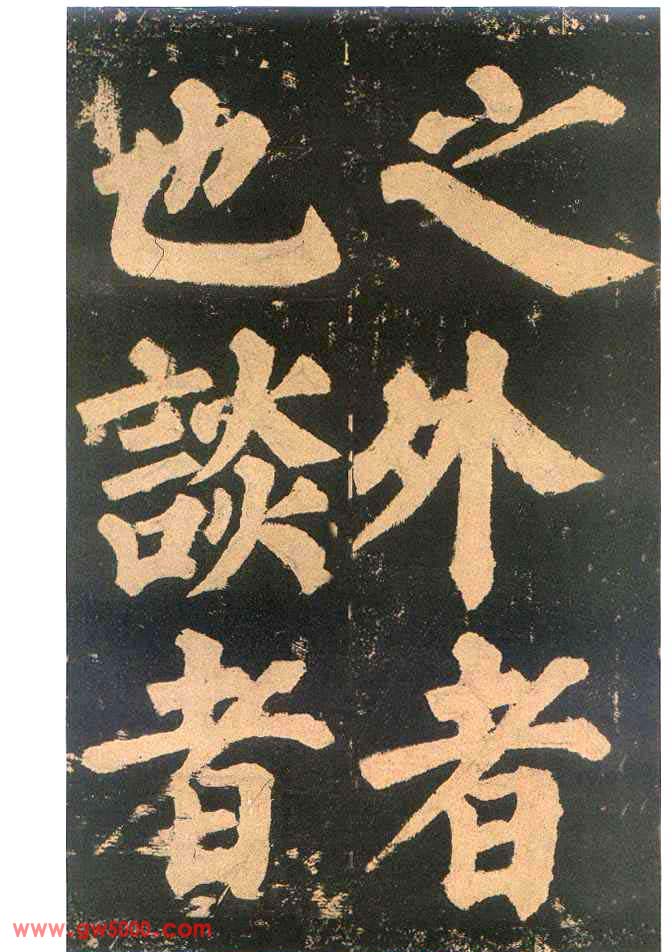 之外者
也談者
www.gw5000.com